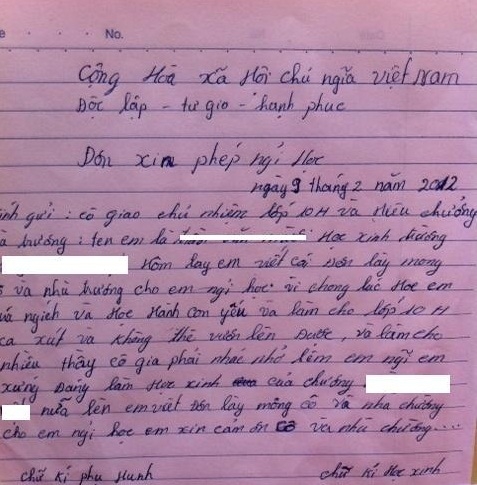 No.
Cộng Hòa xã Hội chủ ngĩa việt Nam
Độc lập - tự gio - hạnh phúc
Đơn xin phép ngỉ Học
ngày 9 tháng 2 năm 2012
ính gửi : cô giao chủ nhiệm lớp 10 H và Hiệu chưởng
à trường : ten em là Học xinh trường
Hôm lay em viết cái Đơn lày mong
ô và nhà trường cho em ngỉ học vì chong lúc Học em
và ngịch và Học Hành con yếu và làm cho lớp 10 H
ca xút và không thể vươn lên Được, và làm cho
nhiều thầy cô gia phải nhac nhở lêm em ngĩ em
xưng Đang làm Học xinh của chường
nữa lên em viết Đơn lày mông cô và nha chường
cho em ngỉ học em xin cảm ơn cô và nhà chường....
chữ kí phụ Huynh chữ kí Học xinh